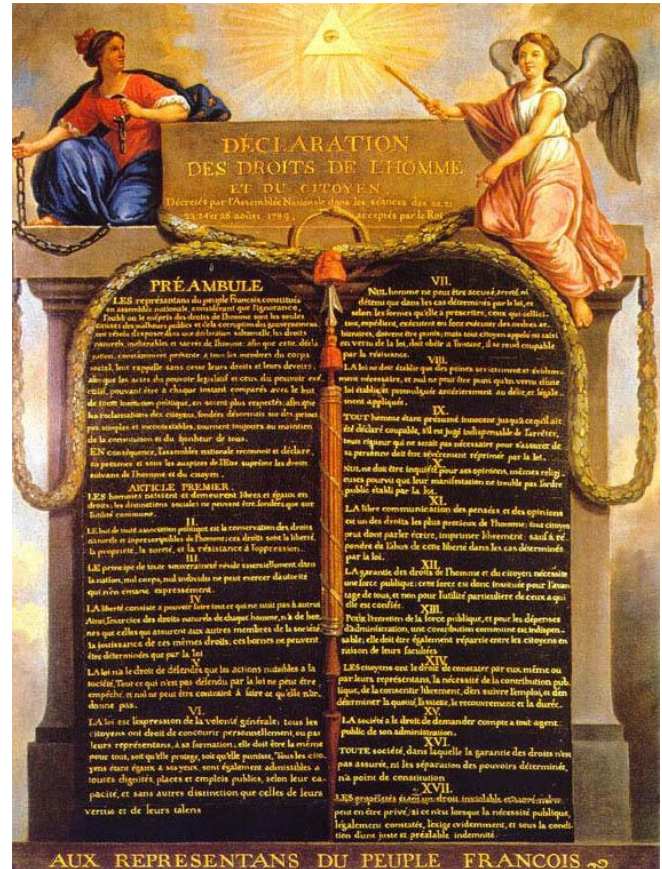 DÉCLARATION
DES DROITS DE L'HOMME
ET DU CITOYEN,
Décretés par l'Assemblée Nationale dans les séances des 20, 21
23, 24 et 26 août 1789, acceptés par le Roi
PRÉAMBULE
LES représentans du peuple François, constitués
en assemblée nationale, considérant que l'ignorance,
l'oubli ou le mépris des droits de l'homme sont les seules
causes des malheurs publics et de la corruption des gouvernemens
ont résolu d'exposer dans une déclaration solemnelle, les droits
naturels, inaliénables et sacrés de l'homme: afin que cette décla
ration, constamment présente à tous les membres du corps
social, leur rappelle sans cesse leurs droits et leurs devoirs;
afin que les actes du pouvoir législatif et ceux du pouvoir exé
cutif, pouvant être à chaque instant comparés avec le but
de toute institution politique, en soient plus respectés; afin que
les réclamations des citoyens, fondées désormais sur des princi
pes simples et incontestables, tournent toujours au maintien
de la constitution et du bonheur de tous.
EN conséquence, l'assemblée nationale reconnoit et déclare,
en présence et sous les auspices de l'Etre suprême les droits
suivans de l'homme et du citoyen.
ARTICLE PREMIER.
LES hommes naissent et demeurent libres et égaux en
droits; les distinctions sociales ne peuvent être fondées que sur
l'utilité commune.
II.
LE but de toute association politique est la conservation des droits
naturels et imprescriptibles de l'homme; ces droits sont la liberté,
la propriété, la sureté, et la résistance à l'oppression.
III.
LE principe de toute souveraineté réside essentiellement dans
la nation, nul corps, nul individu ne peut exercer d'autorité
qui n'en émane expressément.
IV.
LA liberté consiste à pouvoir faire tout ce qui ne nuit pas à autrui
Ainsi, l'exercice des droits naturels de chaque homme, n'a de bor
nes que celles qui assurent aux autres membres de la société
la jouissance de ces mêmes droits; ces bornes ne peuvent
être déterminées que par la loi
V.
LA loi n'a le droit de défendre que les actions nuisibles à la
société. Tout ce qui n'est pas défendu par la loi ne peut être
empêché, et nul ne peut être contraint à faire ce qu'elle n'or
donne pas.
VI.
LA loi est l'expression de la volonté générale; tous les
citoyens ont droit de concourir personnellement, ou par
leurs représentans, à sa formation; elle doit être la même
pour tous, soit qu'elle protege, soit qu'elle punisse, Tous les cito
yens étant égaux à ses yeux, sont également admissibles à
toutes dignités, places et emplois publics, selon leur ca
pacité, et sans autres distinction que celles de leurs
vertus et de leurs talens
VII.
NUL homme ne peut être accusé, arreté, ni
détenu que dans les cas déterminés par la loi, et
selon les formes qu'elle a prescrites, ceux qui sollici-
tent, expédient, exécutent ou font exécuter des ordres ar-
bitraires, doivent être punis; mais tout citoyen appelé ou saisi
en vertu de la loi, doit obéir à l'instant, il se rend coupable
par la résistance.
VIII.
LA loi ne doit établir que des peines strictement et évidem-
ment nécessaire, et nul ne peut être puni qu'en vertu d'une
loi établie et promulguée antérieurement au délit, et légale-
ment appliquée.
IX.
TOUT homme étant présumé innocent jusqu'à ce qu'il ait
été déclaré coupable, s'il est jugé indispensable de l'arrêter,
toute rigueur qui ne serait pas nécessaire pour s'assurer de
sa personne doit être sévèrement réprimée par la loi.
X.
NUL ne doit être inquiété pour ses opinions, mêmes relig-
ieuses pourvu que leur manifestation ne trouble pas l'ordre
public établi par la loi.
XI.
LA libre communication des pensées et des opinions
est un des droits les plus précieux de l'homme: tout citoyen
peut donc parler écrire, imprimer librement: sauf à ré-
pondre de l'abus de cette liberté dans les cas déterminés
par la loi.
XII.
LA garantie des droits de l'homme et du citoyen nécessite
une force publique; cette force est donc instituée pour l'avan-
tage de tous, et non pour l'utilité particulière de ceux à qui
elle est confiée.
XIII.
POUR l'entretien de la force publique, et pour les dépenses
d'administration, une contribution commune est indispen-
sable; elle doit être également répartie entre les citoyens en
raison de leurs facultées
XIV.
LES citoyens ont le droit de constater par eux même ou
par leurs représentans, la nécessité de la contribution pub-
lique, de la consentir librement, d'en suivre l'emploi, et d'en
déterminer la quotité, l'assiette, le recouvrement et la durée.
XV.
LA société a le droit de demander compte à tout agent
public de son administration.
XVI.
TOUTE société, dans laquelle la garantie des droits n'est
pas assurée, ni les séparation des pouvoirs déterminée,
n'a point de constitution
XVII.
LES propriétés étant un droit inviolable et sacré, nul ne
peut en être privé, si ce n'est lorsque la nécessité publique,
légalement constatée, l'exige evidemment, et sous la condi-
tion d'une juste et préalable indemnité.
AUX REPRESENTANS DU PEUPLE FRANCOIS